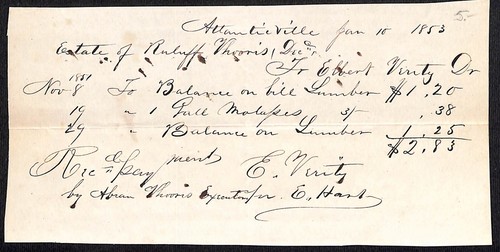 5-
Atlanticville Jan 10 1853
Estate of Ruluff Vhooris, Decd.
To Elbert Verity Dr
1851
Nov 8 To Balance on bill Lumber $1.20
19 " 1 Gall Molasses 3/ .38
29 " Balance on Lumber 1.25
$2.83
Recd payment E. Verity
by Abram Vhooris Executor for E. Hart